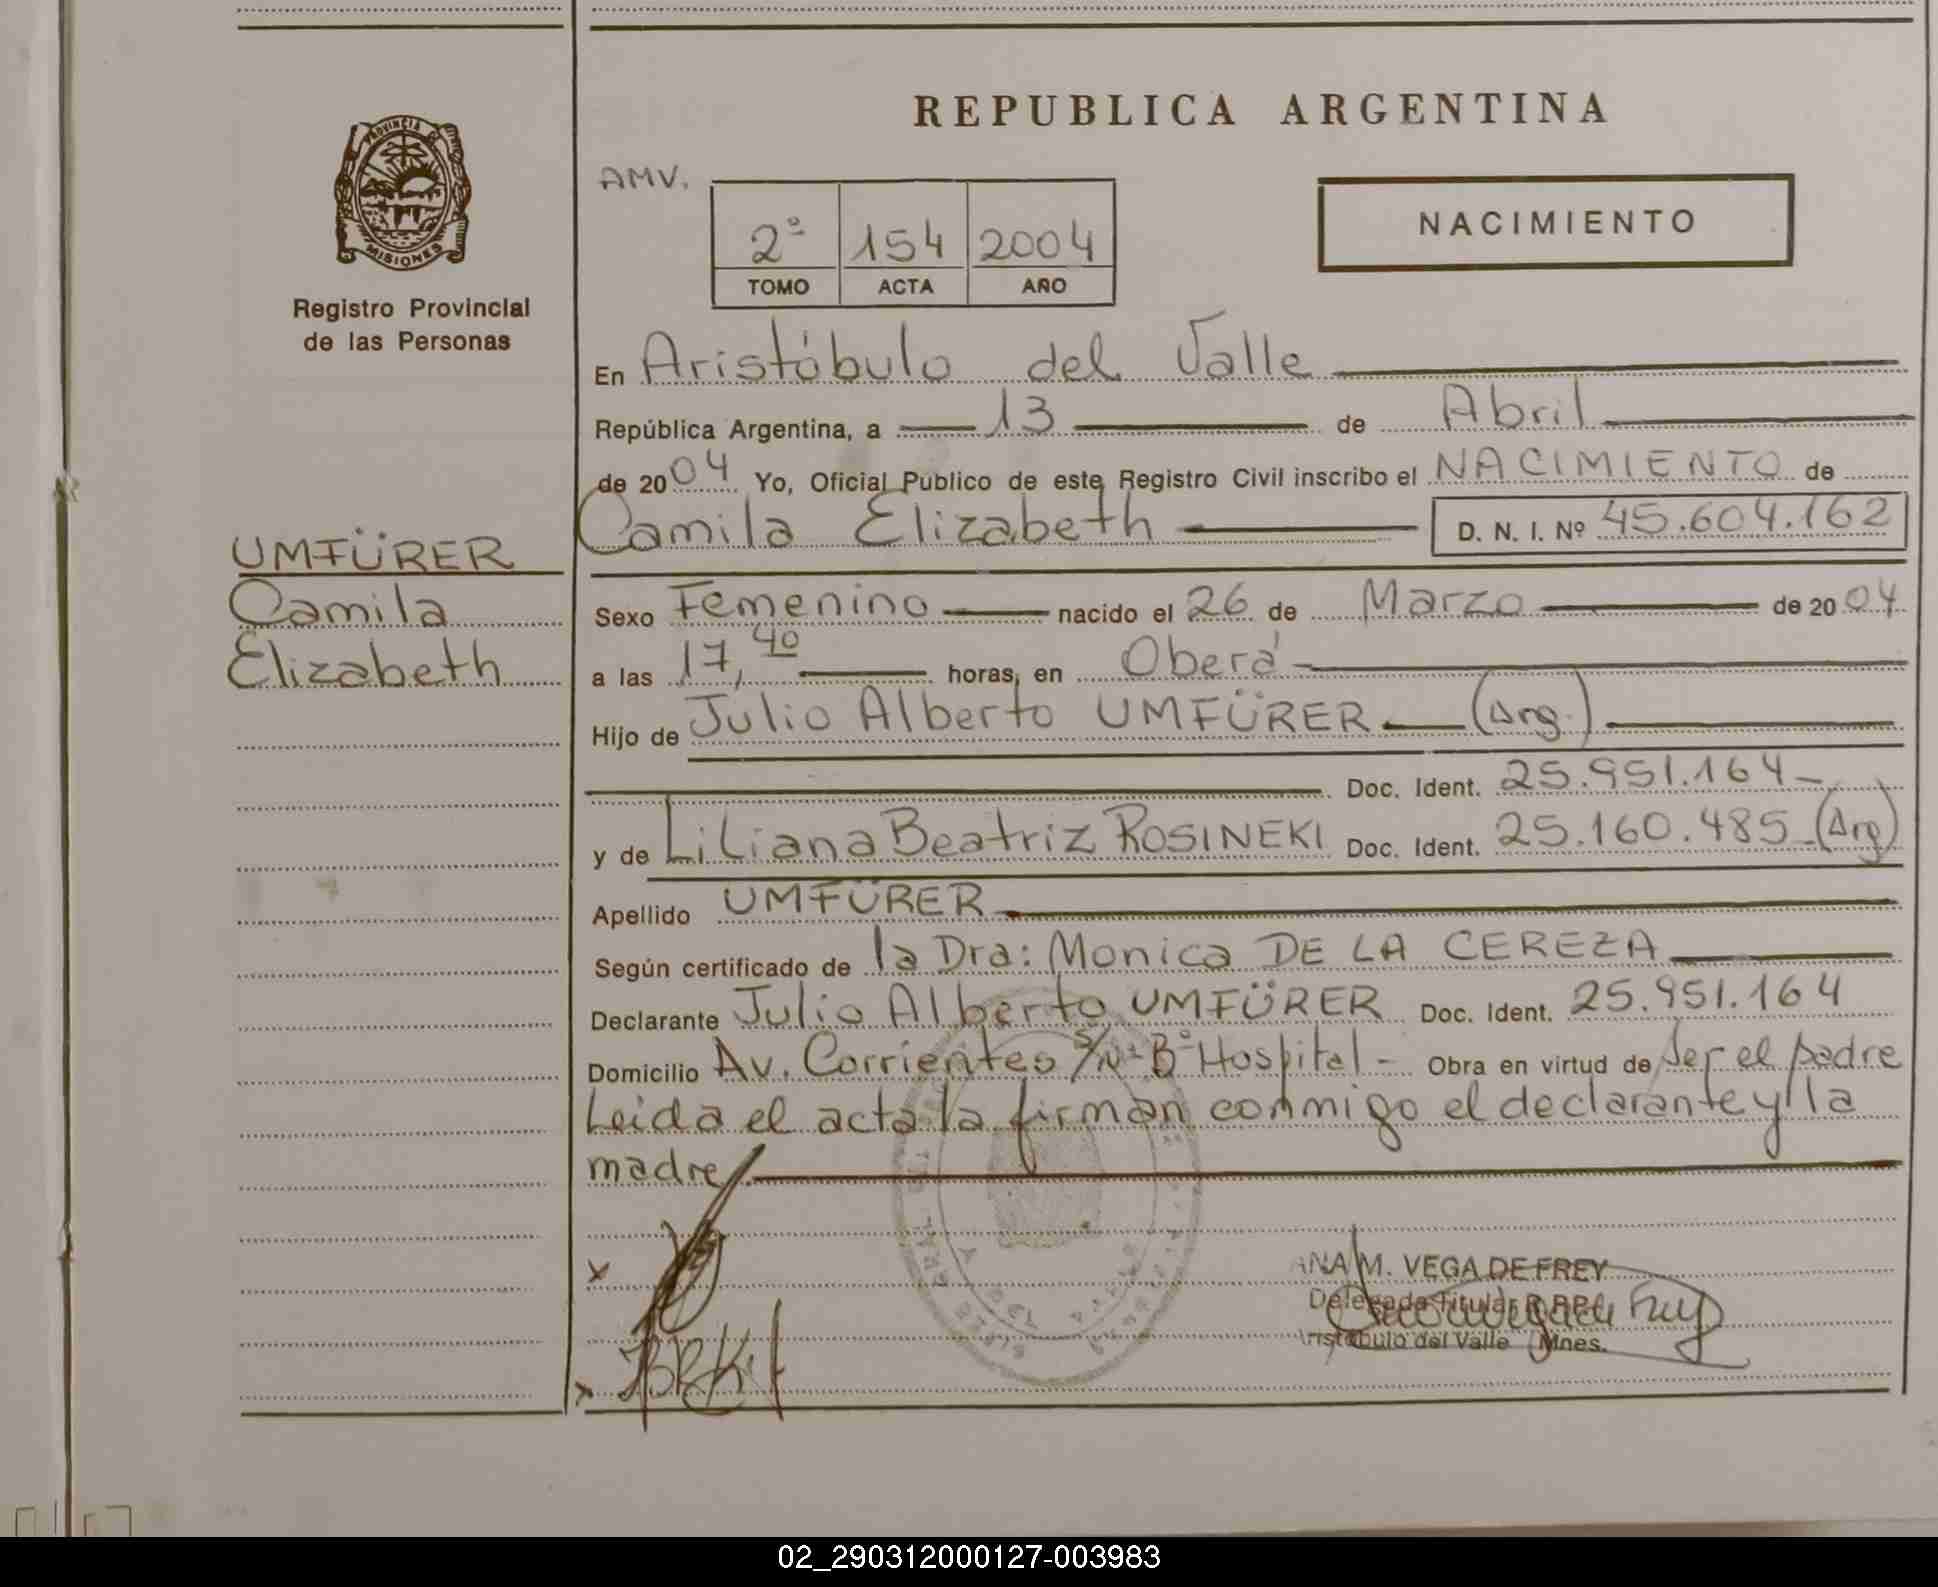 REPUBLICA ARGENTINA
PROVINCIA DE
MISIONES
Registro Provincial
de las Personas
AMV.
2º 154 2004
TOMO ACTA AÑO
NACIMIENTO
En Aristóbulo del Valle
República Argentina, a 13 de Abril
de 2004 Yo, Oficial Publico de este Registro Civil inscribo el NACIMIENTO de
Camila Elizabeth D. N. I. Nº 45.604.162
UMFÜRER
Camila
Elizabeth
Sexo Femenino nacido el 26 de Marzo de 2004
a las 17,40 horas, en Oberá
Hijo de Julio Alberto UMFÜRER (Arg.)
Doc. Ident. 25.951.164
y de Liliana Beatriz ROSINEKI Doc. Ident. 25.160.485 (Arg)
Apellido UMFÜRER
Según certificado de la Dra: Monica DE LA CEREZA
Declarante Julio Alberto UMFÜRER Doc. Ident. 25.951.164
Domicilio Av. Corrientes S/Nº Bº Hospital - Obra en virtud de Ser el padre
Leida el acta la firman conmigo el declarante y la
madre
x
x
ANA M. VEGA DE FREY
Delegada Titular R.P.P.
Aristóbulo del Valle Mnes.
02_290312000127-003983